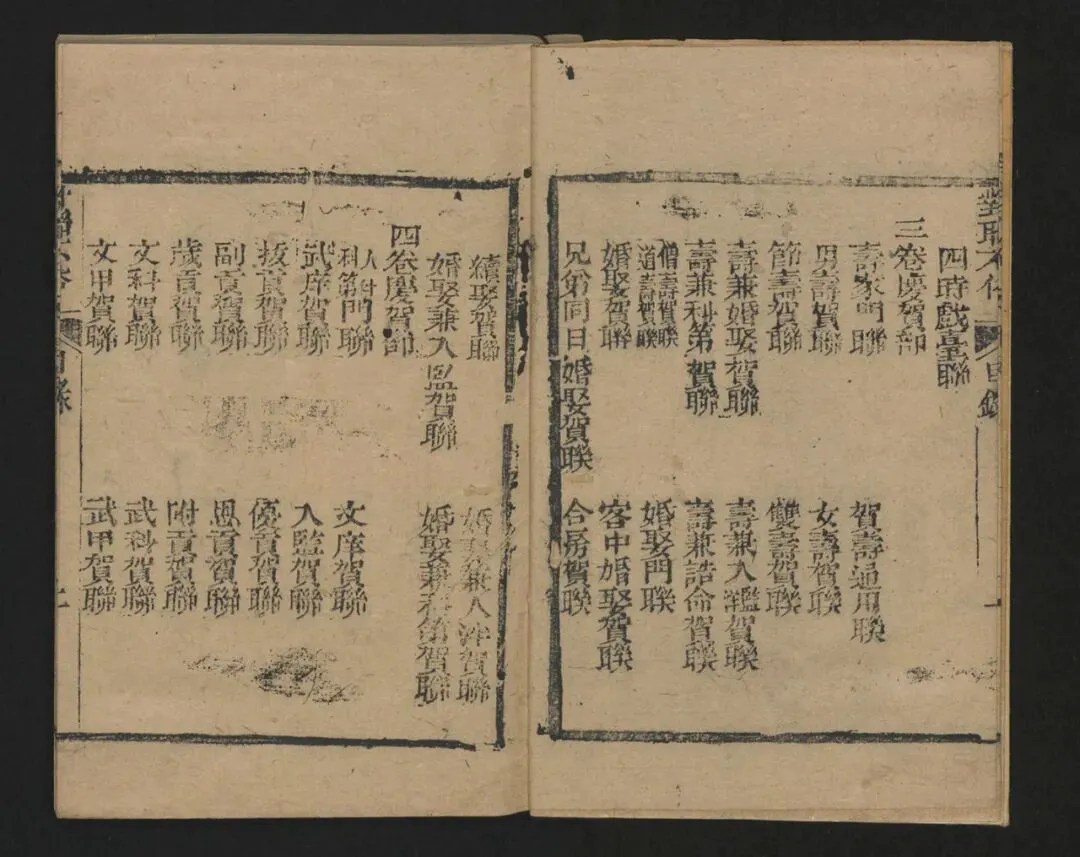 四時戲臺聯
三卷慶賀部
壽家門聯
賀壽通用聯
男壽賀聯
女壽賀聯
節壽賀聯
雙壽賀聯
壽兼婚娶賀聯
壽兼入鑑賀聯
壽兼科第賀聯
壽兼誥命賀聯
僧壽賀聯
道壽賀聯
婚娶門聯
婚娶賀聯
客中婚娶賀聯
兄弟同日婚娶賀聯
合房賀聯
續娶賀聯
婚娶兼入泮賀聯
婚娶兼入監賀聯
婚娶兼科第賀聯
四卷慶賀部
入泮門聯
科第門聯
文庠賀聯
武庠賀聯
入監賀聯
拔貢賀聯
優貢賀聯
副貢賀聯
恩貢賀聯
歲貢賀聯
附貢賀聯
文科賀聯
武科賀聯
文甲賀聯
武甲賀聯
目錄